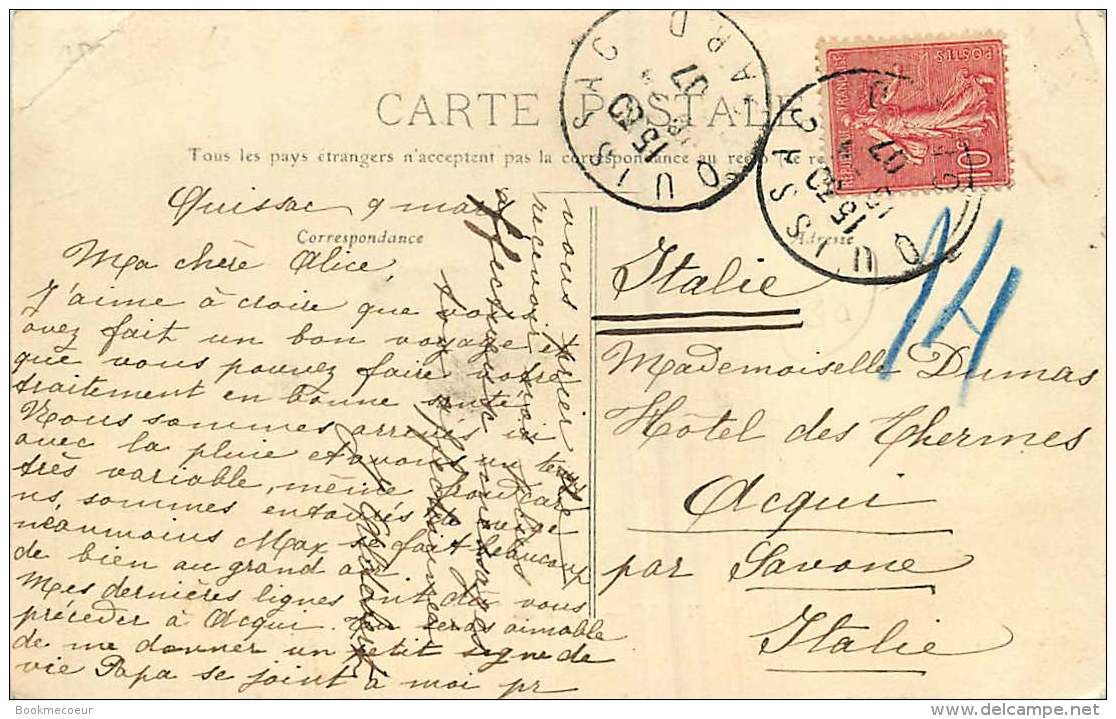 CARTE POSTALE
Tous les pays étrangers n'acceptent pas la correspondance au recto (Se re
Correspondance
Adresse
Quissac 9 mai
Ma chère Alice,
J'aime à croire que vous
avez fait un bon voyage et
que vous pouvez faire votre
traitement en bonne santé.
Nous sommes arrivés ici
avec la pluie et avons un temps
très variable, même
ns, sommes entourés de neige
néanmoins Max se fait beaucoup
de bien au grand air
Mes dernières lignes ont dû vous
précéder à Acqui. Tu seras aimable
de me donner un petit signe de
vie Papa se joint à moi pr
vous prier de
recevoir nos
affectueuse
ton affectionnée
Italie
Mademoiselle Dumas
Hôtel des Thermes
Acqui
par Savone
Italie
14
QUISSAC
GARD
15 30
07
QUISSAC
15 30
07
POSTES
10
Bookmecoeur
www.delcampe.net